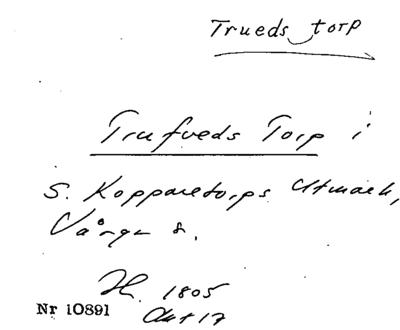 Trueds torp
Trufveds Torp i
S. Kopparetorps Utmark,
Vånga s.
H. 1805
Akt 17
Nr 10891